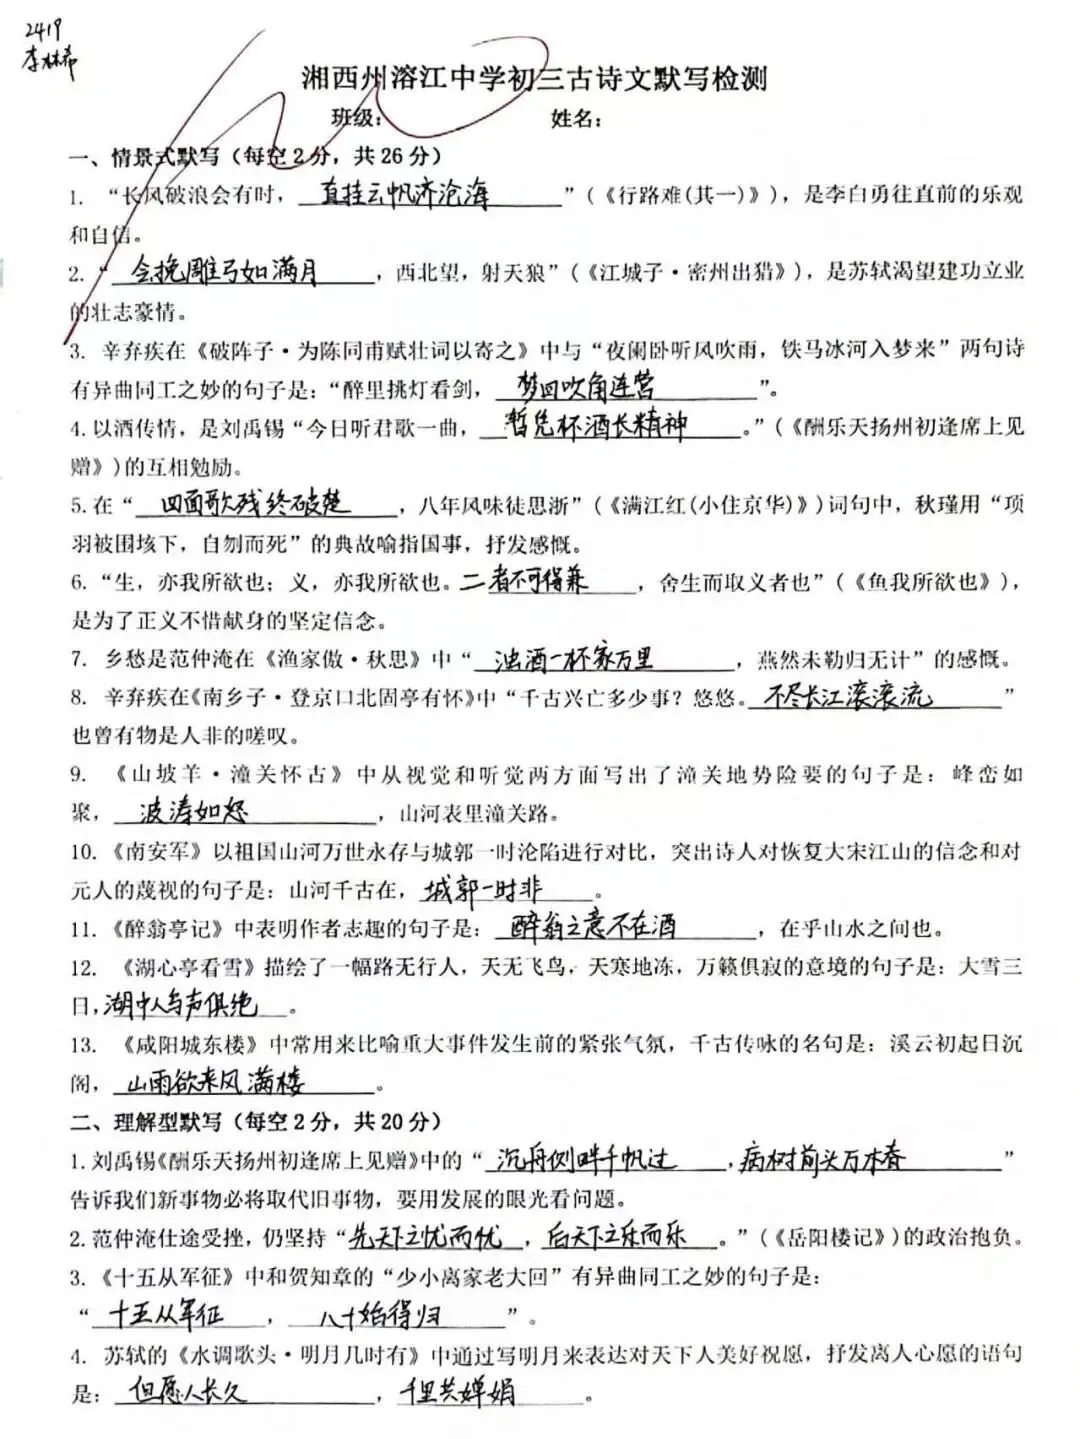 2419
李林希
湘西州溶江中学初三古诗文默写检测
班级： 姓名：
一、情景式默写（每空2分，共26分）
1. “长风破浪会有时，直挂云帆济沧海”（《行路难(其一)》），是李白勇往直前的乐观
和自信。
2. “会挽雕弓如满月，西北望，射天狼”（《江城子·密州出猎》），是苏轼渴望建功立业
的壮志豪情。
3. 辛弃疾在《破阵子·为陈同甫赋壮词以寄之》中与“夜阑卧听风吹雨，铁马冰河入梦来”两句诗
有异曲同工之妙的句子是：“醉里挑灯看剑，梦回吹角连营”。
4.以酒传情，是刘禹锡“今日听君歌一曲，暂凭杯酒长精神。”（《酬乐天扬州初逢席上见
赠》)的互相勉励。
5.在“四面歌残终破楚，八年风味徒思浙”（《满江红(小住京华)》)词句中，秋瑾用“项
羽被围垓下，自刎而死”的典故喻指国事，抒发感慨。
6.“生，亦我所欲也；义，亦我所欲也。二者不可得兼，舍生而取义者也”（《鱼我所欲也》），
是为了正义不惜献身的坚定信念。
7. 乡愁是范仲淹在《渔家傲·秋思》中“浊酒一杯家万里，燕然未勒归无计”的感慨。
8. 辛弃疾在《南乡子·登京口北固亭有怀》中“千古兴亡多少事？悠悠。不尽长江滚滚流”
也曾有物是人非的嗟叹。
9. 《山坡羊·潼关怀古》中从视觉和听觉两方面写出了潼关地势险要的句子是：峰峦如
聚，波涛如怒，山河表里潼关路。
10.《南安军》以祖国山河万世永存与城郭一时沦陷进行对比，突出诗人对恢复大宋江山的信念和对
元人的蔑视的句子是：山河千古在，城郭一时非。
11.《醉翁亭记》中表明作者志趣的句子是：醉翁之意不在酒，在乎山水之间也。
12. 《湖心亭看雪》描绘了一幅路无行人，天无飞鸟，天寒地冻，万籁俱寂的意境的句子是：大雪三
日,湖中人与声俱绝。
13. 《咸阳城东楼》中常用来比喻重大事件发生前的紧张气氛，千古传咏的名句是：溪云初起日沉
阁，山雨欲来风满楼。
二、理解型默写（每空2分，共20分）
1.刘禹锡《酬乐天扬州初逢席上见赠》中的“沉舟侧畔千帆过,病树前头万木春”
告诉我们新事物必将取代旧事物，要用发展的眼光看问题。
2.范仲淹仕途受挫，仍坚持“先天下之忧而忧，后天下之乐而乐。”（《岳阳楼记》)的政治抱负。
3.《十五从军征》中和贺知章的“少小离家老大回”有异曲同工之妙的句子是：
“十五从军征，八十始得归”。
4. 苏轼的《水调歌头·明月几时有》中通过写明月来表达对天下人美好祝愿，抒发离人心愿的语句
是：但愿人长久，千里共婵娟。